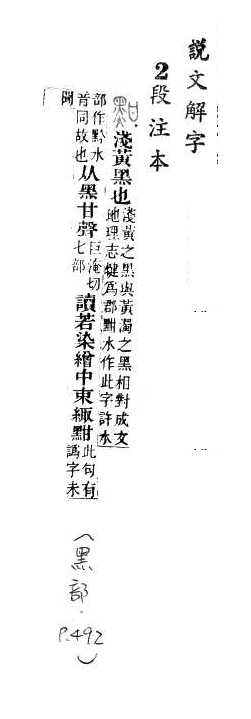 說文解字
2段注本
黚 淺黃黑也淺黃之黑與黃濁之黑相對成文地理志犍爲郡黚水作此字許水
部作黔水音同故也从黑甘聲巨淹切七部讀若染繒中束緅黚此句有譌字未
聞
(黑部.
P.492)